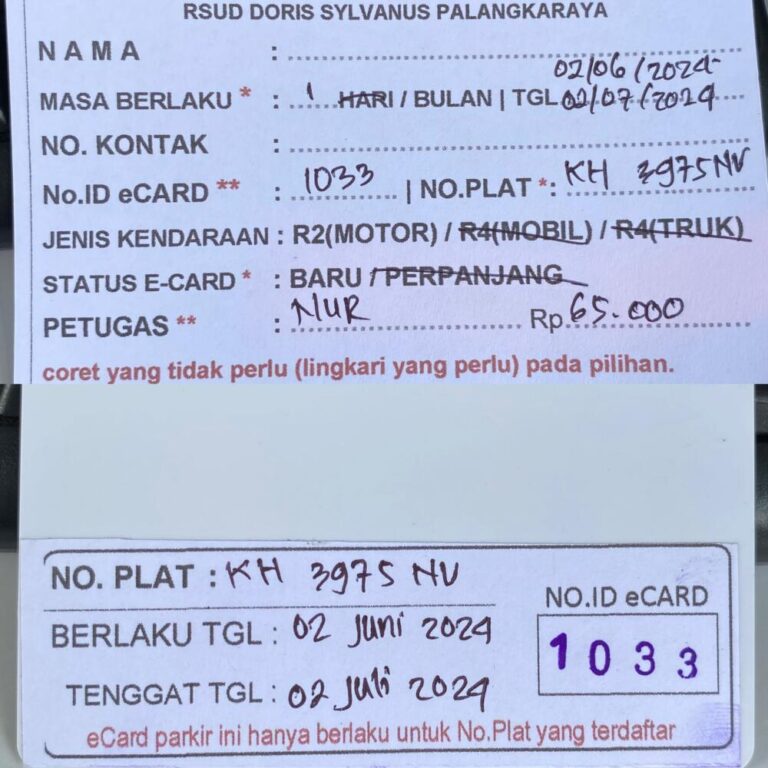 RSUD DORIS SYLVANUS PALANGKARAYA
NAMA :
02/06/2024-
MASA BERLAKU * : 1 HARI / BULAN | TGL 02/07/2024
NO. KONTAK :
No.ID eCARD ** : 1033 | NO.PLAT *: KH 3975 NV
JENIS KENDARAAN : R2(MOTOR) / R4(MOBIL) / R4(TRUK)
STATUS E-CARD * : BARU / PERPANJANG
PETUGAS ** : NUR Rp 65.000
coret yang tidak perlu (lingkari yang perlu) pada pilihan.
NO. PLAT : KH 3975 NV
BERLAKU TGL : 02 Juni 2024
TENGGAT TGL : 02 Juli 2024
NO.ID eCARD
1033
eCard parkir ini hanya berlaku untuk No.Plat yang terdaftar